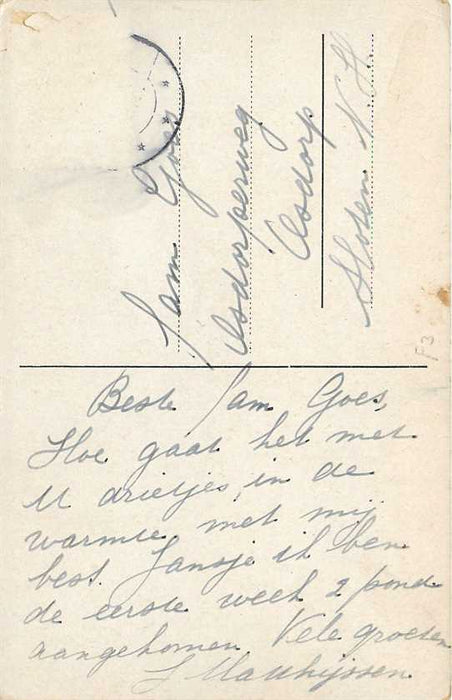 Fam Goes
Osdorperweg
Osdorp
Sloten N.H.
Beste Fam Goes,
Hoe gaat het met
U drietjes, in de
warmte, met mij
best. Jansje ik ben
de eerste week 2 pond
aangekomen Vele groeten
J Matthijssen
F3